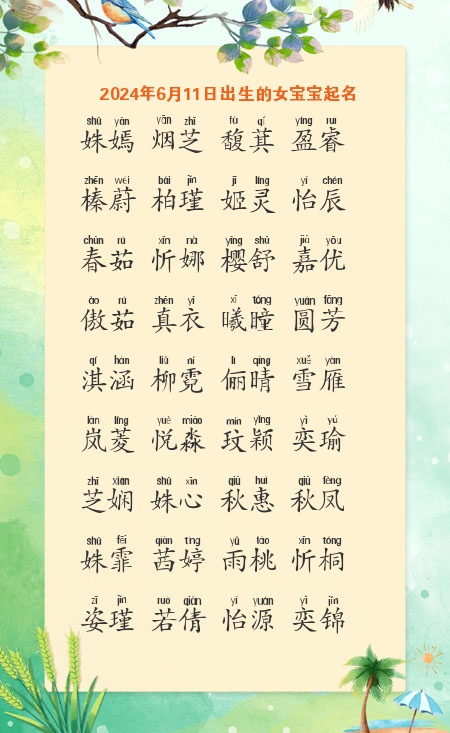 2024年6月11日出生的女宝宝起名
shū yān yān zhī fù qí yíng ruì
姝嫣 烟芝 馥萁 盈睿
zhēn wèi bǎi jǐn jī líng yí chén
榛蔚 柏瑾 姬灵 怡辰
chūn rú xīn nà yīng shū jiā yōu
春茹 忻娜 樱舒 嘉优
ào rú zhēn yī xī tóng yuán fāng
傲茹 真衣 曦曈 圆芳
qí hán liǔ ní lì qíng xuě yàn
淇涵 柳霓 俪晴 雪雁
lán líng yuè miǎo mín yǐng yì yú
岚菱 悦淼 玟颖 奕瑜
zhī xián shū xīn qiū huì qiū fèng
芝娴 姝心 秋惠 秋凤
shū fēi qiàn tíng yǔ táo xīn tóng
姝霏 茜婷 雨桃 忻桐
zī jǐn ruò qiàn yí yuán yì jǐn
姿瑾 若倩 怡源 奕锦